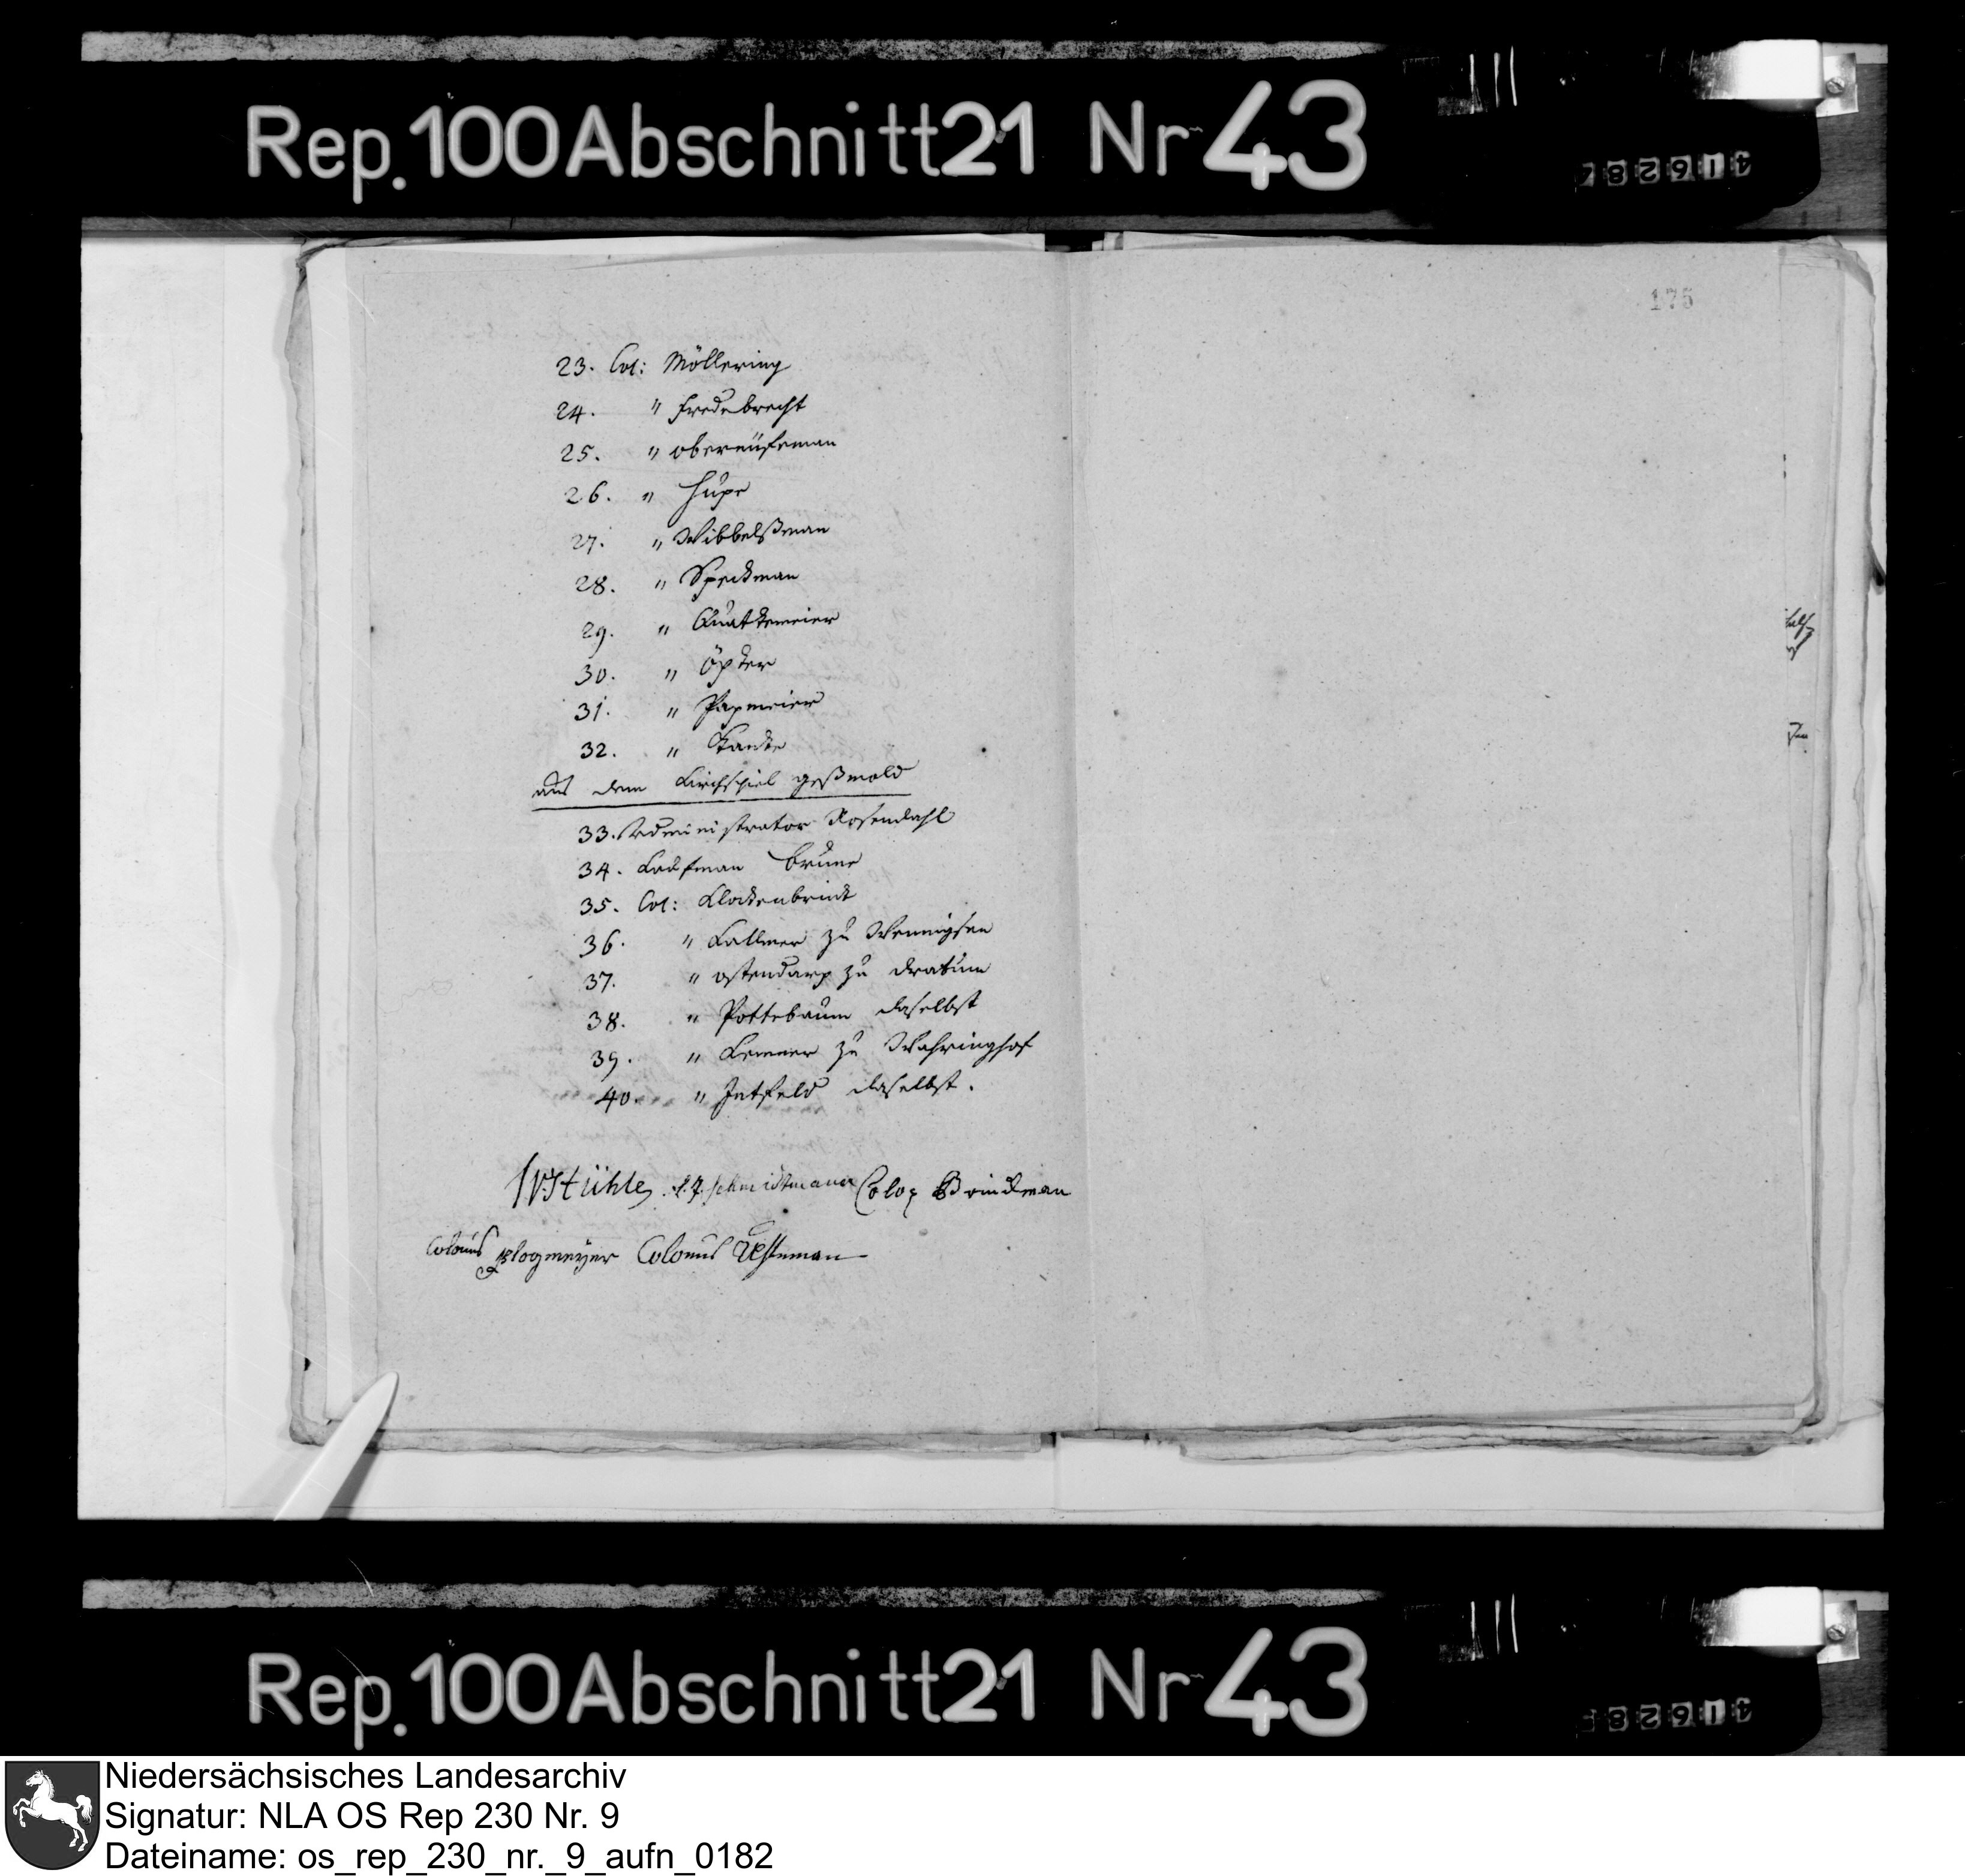 Rep. 100 Abschnitt 21 Nr 43
175
23. Col: Möllering
24. " Fredebrecht
25. "
26. " Hüpe
27. " Wibbelßman
28. " Speckman
29. " Quatkemeier
30. " Öpker
31. " Papmeier
32. " Kanke
aus dem Kirchspiel geßmold
33. Administrator Rosendahl
34. Kaufman Brüne
35. Col: Klockenbrink
36. " Kallmer zu Wennigsen
37. " ostendarp zu dratum
38. " Pottebaum daselbst
39. " Kemner zu Wahringhof
40. " Jntfeld daselbst.
Stühle Schmidtmann Colon Brinckman
Colonus Plogmeyer Colonus Uesteman
Rep. 100 Abschnitt 21 Nr 43
Niedersächsisches Landesarchiv
Signatur: NLA OS Rep 230 Nr. 9
Dateiname: os_rep_230_nr._9_aufn_0182